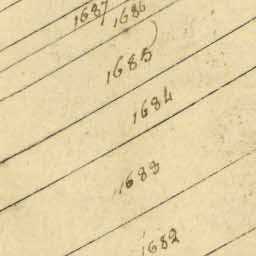 1687
1686
1685
1684
1683
1682